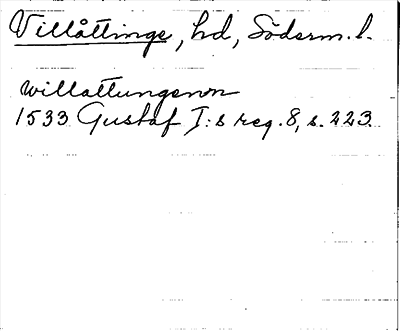 Villåttinge, hd, Söderm. l.
willattungenon
1533 Gustaf I:s reg. 8, s. 223